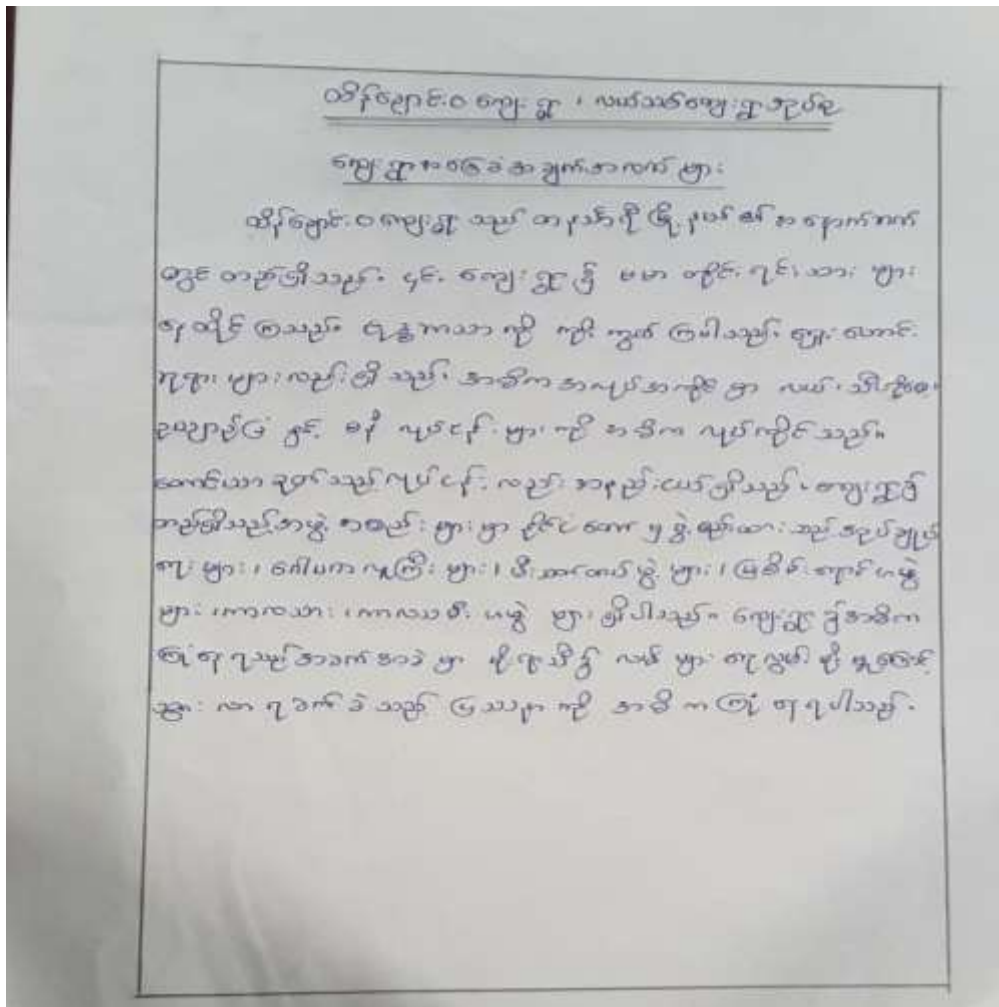 ထိန်ချောင်းဝ ကျေးရွာ ၊ လယ်သစ်ကျေးရွာအုပ်စု
ကျေးရွာအခြေခံအချက်အလက်များ
ထိန်ချောင်းဝကျေးရွာ သည် တနင်္သာရီ မြို့နယ်၏ အနောက်ဘက်
တွင် တည်ရှိသည်။ ၎င်း ကျေးရွာ ၌ ဗမာ တိုင်းရင်းသား များ
နေထိုင် ကြသည်။ ဗုဒ္ဓဘာသာ ကို ကိုးကွယ် ကြပါသည်။ ရှေးဟောင်း
ဘုရား များလည်း ရှိ သည်။ အဓိက အလုပ်အကိုင် မှာ လယ်၊
ဥယျာဉ်ခြံ နှင့် လုပ်ငန်း များ ကို အဓိက လုပ်ကိုင် သည်။
တောင်ယာ ခုတ်သည့် လုပ်ငန်း လည်း အနည်းငယ် ရှိသည်။ ကျေးရွာ၌
တည်ရှိသည့် အဖွဲ့ အစည်း များမှာ နိုင်ငံတော် မှ ဖွဲ့စည်းထား သည့် အုပ်ချုပ်
ရေး များ၊ ဂေါပကလူကြီး များ၊ မီးသတ်တပ်ဖွဲ့ များ၊ မြစိမ်းရောင် ဖွဲ့
များ ၊ကာလသား ၊ကာလသမီး များ ရှိပါသည်။ ကျေးရွာ ၌ အဓိက
ကြုံ တွေ့ ရသည့် အခက် အခဲ မှာ မိုးရာသီ ၌ လယ် များ ရေလွှမ်း မိုး မှုကြောင့်
သွား လာ ရ ခက် ခဲ သည့် ပြဿနာ ကို အဓိ က ကြုံ တွေ့ ရပါသည်။